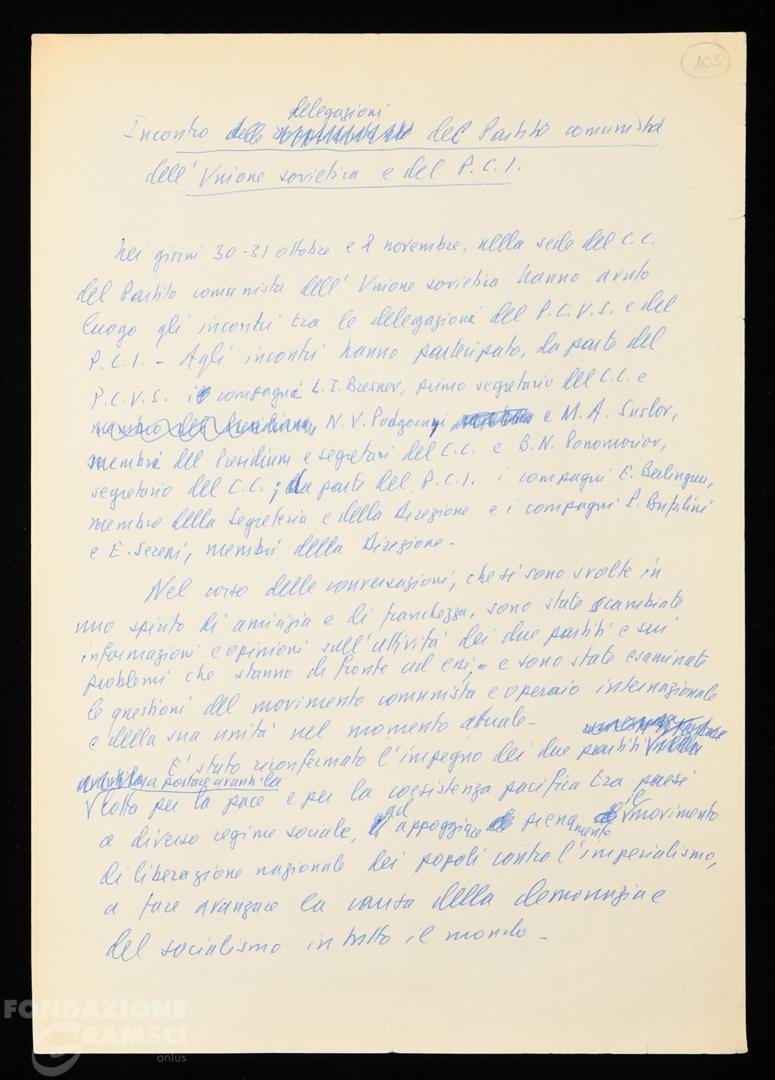 103
delegazioni
Incontro delle del Partito comunista
dell'Unione sovietica e del P.C.I.
Nei giorni 30-31 ottobre e 2 novembre, nella sede del C.C.
del Partito comunista dell'Unione sovietica hanno avuto
luogo gli incontri tra le delegazioni del P.C.U.S. e del
P.C.I. - Agli incontri hanno partecipato, da parte del
P.C.U.S. i compagni L.I. Bresnev, primo segretario del C.C. e
membro del Presidium, N.V. Podgorny e M.A. Suslov,
membri del Presidium e segretari del C.C. e B.N. Ponomoriov,
segretario del C.C.; da parte del P.C.I. i compagni E. Berlinguer,
membro della Segreteria e della Direzione e i compagni P. Bufalini
e E. Sereni, membri della Direzione -
Nel corso delle conversazioni, che si sono svolte in
uno spirito di amicizia e di franchezza, sono state scambiate
informazioni e opinioni sull'attività dei due partiti e sui
problemi che stanno di fronte ad essi, e sono state esaminate
le questioni del movimento comunista e operaio internazionale
e della sua unità nel momento attuale -
E' stato riconfermato l'impegno dei due partiti
a portare avanti la
lotta per la pace e per la coesistenza pacifica tra paesi
a diverso regime sociale, ad appoggiare pienamente il movimento
di liberazione nazionale dei popoli contro l'imperialismo,
a fare avanzare la causa della democrazia e
del socialismo in tutto il mondo -
FONDAZIONE
GRAMSCI
onlus